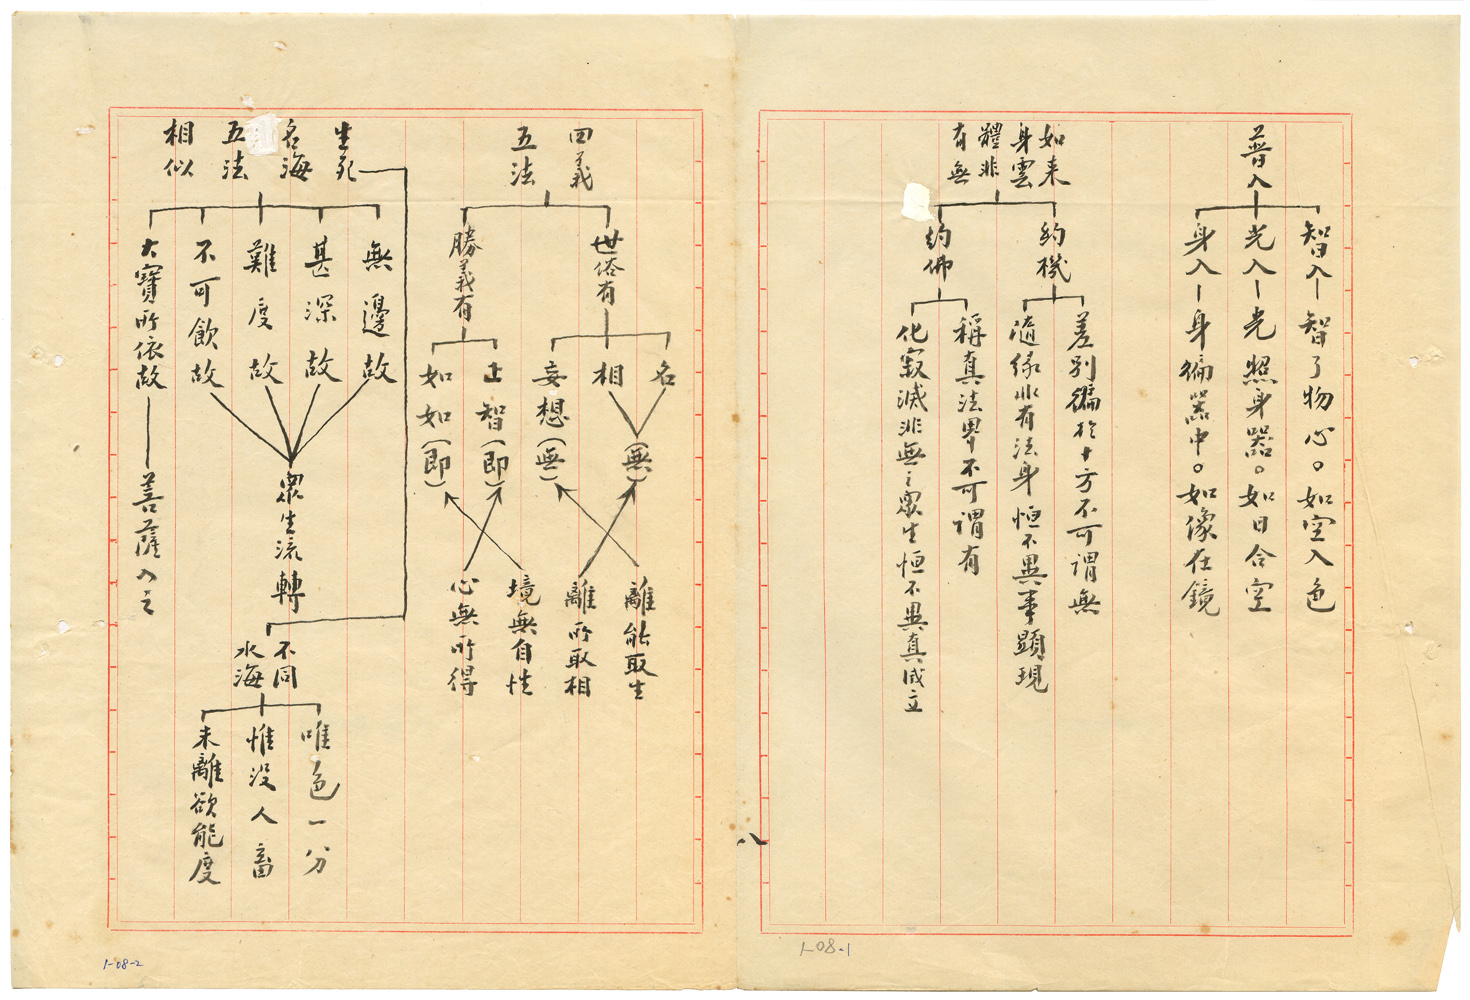 普入
智入—智了物心。如空入色
光入—光照身器。如日合空
身入—身徧器中。如像在鏡
如来
身雲
體非
有無
約機
差别徧於十方不可謂無
隨緣非有法身恒不異事顯現
約佛
稱真法界不可謂有
化寂滅非無之眾生恒不異真成立
八
1-08-1
四義
五法
世俗有
名
相
(無)
妄想(無)
勝義有
正智(即)
如如(即)
離能取生
離所取相
境無自性
心無所得
生死
名海
五法
相似
無邊故
甚深故
難度故
不可飲故
眾生流轉
大寶所依故—菩薩入之
不同
水海
唯色一分
惟没人畜
未離欲能度
1-08-2